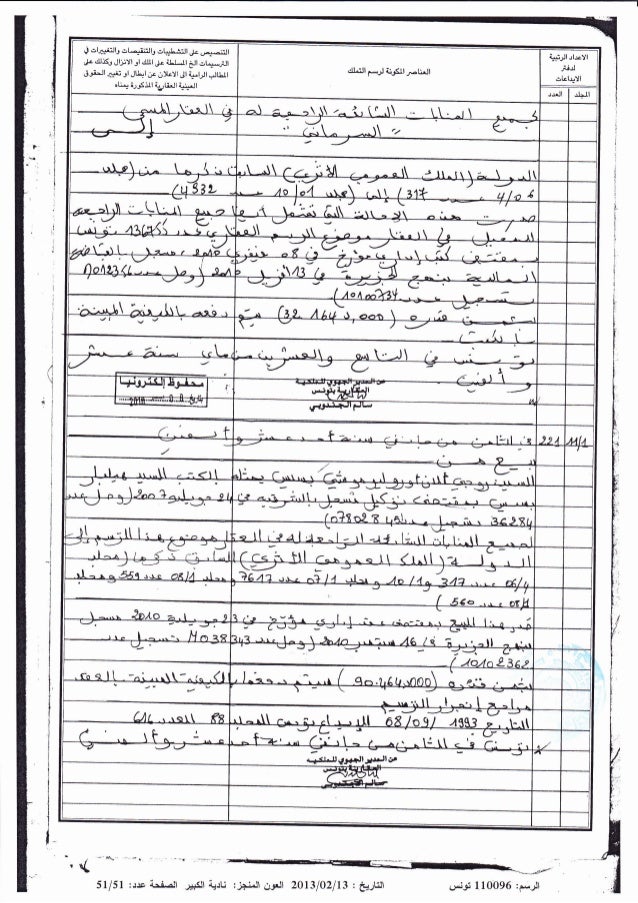 الاعداد الرتبية
لدفتر
الايداعات
المجلد العدد
العناصر المكونة لرسم التملك
التنصيص على التشطيبات والتنقيصات والتغييرات في
الترسيمات الخ المسلطة على الملك او الانزال وكذلك على
المطالب الرامية الى الاعلان عن ابطال او تغيير الحقوق
العينية العقارية المذكورة يمناه
لجميع المنابات الشائعة الراجعة له في العقار المسمى
"السرماني" إلى
الدولة (الملك العمومي الأثري) السابق ذكرها من (مجلد
4/06 عدد 317) إلى (مجلد 10/01 عدد 4332)
صدرت هذه الإحالة التي تشمل جميع المنابات الراجعة
في العقار موضوع الرسم العقاري عدد تونس
بمقتضى كتب إداري مؤرخ في 08 فيفري 2010 مسجل بالقباضة
المالية بنهج الجزيرة في 13 أفريل 2010 (وصل عدد M012356
تسجيل عدد 10100734)
بثمن قدره (32.164,000) سيتم دفعه بالكيفية المبينة
بالكتب
تونس في التاسع والعشرين من ماي سنة عشر
وألفين
عن المدير الجهوي للملكية
العقارية بتونس
سالم الجندوبي
محفوظ إلكترونيا
11/1 221 في الثامن من جانفي سنة أحد عشر وألفين
بيع من
السيد روجي ألان يمثله بالكتب السيد
بمقتضى توكيل مسجل في 24 جويلية 2007 (وصل عدد
36284 تسجيل عدد 07802849)
لجميع المنابات الشائعة الراجعة له في العقار موضوع هذا الرسم إلى
الدولة (الملك العمومي الأثري) السابق ذكرها (مجلد
06/4 عدد 317 و 10/1 ومجلد 07/1 عدد 7617 ومجلد 08/1 عدد 559 ومجلد
08/1 عدد 560)
صدر هذا البيع بمقتضى عقد إداري مؤرخ في 23 جويلية 2010 مسجل
بنهج الجزيرة في 16 سبتمبر 2010 (وصل عدد M038343 تسجيل عدد
10102362)
بثمن قدره (90.464,000) سيتم دفعها بالكيفية المبينة بالعقد
مراجع إنجرار الترسيم
التاريخ 08/09/1993 الإيداع تونس المجلد 88 العدد 616
تونس في الثامن من جانفي سنة أحد عشر وألفين
عن المدير الجهوي للملكية
العقارية بتونس
سالم الجندوبي
الرسم: 110096 تونس التاريخ : 2013/02/13 العون المنجز: نادية الكبير الصفحة عدد: 51/51